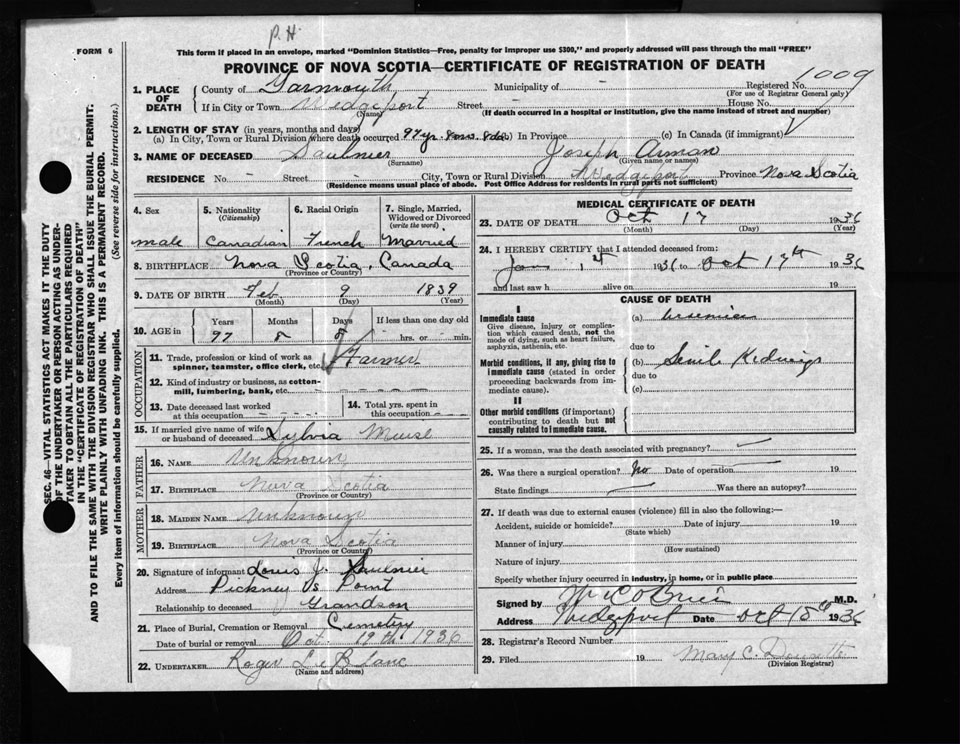 P.H.
FORM 6
This form if placed in an envelope, marked "Dominion Statistics—Free, penalty for improper use $300," and properly addressed will pass through the mail "FREE"
PROVINCE OF NOVA SCOTIA—CERTIFICATE OF REGISTRATION OF DEATH
1009
1. PLACE OF DEATH
County of Yarmouth Municipality of - Registered No.
(For use of Registrar General only)
If in City or Town Wedgeport Street - House No.
(Name) (If death occurred in a hospital or institution, give the name instead of street and number)
2. LENGTH OF STAY (in years, months and days)
(a) In City, Town or Rural Division where death occurred 97 yr. 8 mos. 8 ds. (b) In Province (c) In Canada (if immigrant)
3. NAME OF DECEASED Saulnier Joseph Arman
(Surname) (Given name or names)
RESIDENCE No. - Street - City, Town or Rural Division Wedgeport Province Nova Scotia
(Residence means usual place of abode. Post Office Address for residents in rural parts not sufficient)
4. Sex
male
5. Nationality
(Citizenship)
Canadian
6. Racial Origin
French
7. Single, Married, Widowed or Divorced
(write the word)
Married
8. BIRTHPLACE Nova Scotia, Canada
(Province or Country)
9. DATE OF BIRTH Feb. 9 1839
(Month) (Day) (Year)
10. AGE in
Years Months Days If less than one day old
97 8 8 hrs. or min.
OCCUPATION
11. Trade, profession or kind of work as spinner, teamster, office clerk, etc. Farmer
12. Kind of industry or business, as cotton-mill, lumbering, bank, etc.
13. Date deceased last worked at this occupation
14. Total yrs. spent in this occupation
15. If married give name of wife or husband of deceased Sylvia Muise
FATHER
16. NAME Unknown
17. BIRTHPLACE Nova Scotia
(Province or Country)
MOTHER
18. MAIDEN NAME Unknown
19. BIRTHPLACE Nova Scotia
(Province or Country)
20. Signature of informant Louis J. Saulnier
Address Pickney's Point
Relationship to deceased Grandson
21. Place of Burial, Cremation or Removal Cemetery
Date of burial or removal Oct. 19th 1936
22. UNDERTAKER Roger LeBlanc
(Name and address)
MEDICAL CERTIFICATE OF DEATH
23. DATE OF DEATH Oct 17 1936
(Month) (Day) (Year)
24. I HEREBY CERTIFY that I attended deceased from:
Jan 1st 1936 to Oct 17th 1936
and last saw h alive on 19
CAUSE OF DEATH
I
Immediate cause
Give disease, injury or complication which caused death, not the mode of dying, such as heart failure, asphyxia, asthenia, etc.
(a)
due to
Morbid conditions, if any, giving rise to immediate cause (stated in order proceeding backwards from immediate cause).
(b) Senile
due to
(c)
II
Other morbid conditions (if important) contributing to death but not causally related to immediate cause.
25. If a woman, was the death associated with pregnancy?
26. Was there a surgical operation? No Date of operation 19
State findings Was there an autopsy?
27. If death was due to external causes (violence) fill in also the following:—
Accident, suicide or homicide? Date of injury 19
(State which)
Manner of injury
(How sustained)
Nature of injury
Specify whether injury occurred in industry, in home, or in public place
Signed by O'Brien M.D.
Address Wedgeport Date Oct 18th 1936
28. Registrar's Record Number
29. Filed 19 Mary C. Doucette
(Division Registrar)
SEC. 46—VITAL STATISTICS ACT MAKES IT THE DUTY
OF THE UNDERTAKER OR PERSON ACTING AS UNDER-
TAKER TO OBTAIN ALL THE PARTICULARS REQUIRED
IN THE "CERTIFICATE OF REGISTRATION OF DEATH"
AND TO FILE THE SAME WITH THE DIVISION REGISTRAR WHO SHALL ISSUE THE BURIAL PERMIT.
WRITE PLAINLY WITH UNFADING INK. THIS IS A PERMANENT RECORD.
Every item of information should be carefully supplied. (See reverse side for instructions.)